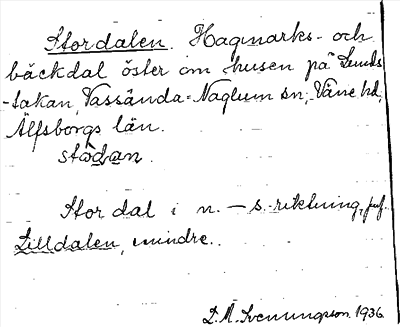 Stordalen. Hagmarks- och
bäckdal öster om husen på Lunds
-takan, Vassända-Naglum sn, Väne hd,
Älfsborgs län.
stödan.
Stor dal i n. – s.-riktning, juf.
Lilldalen, mindre.
D. A. Svenungsson. 1936